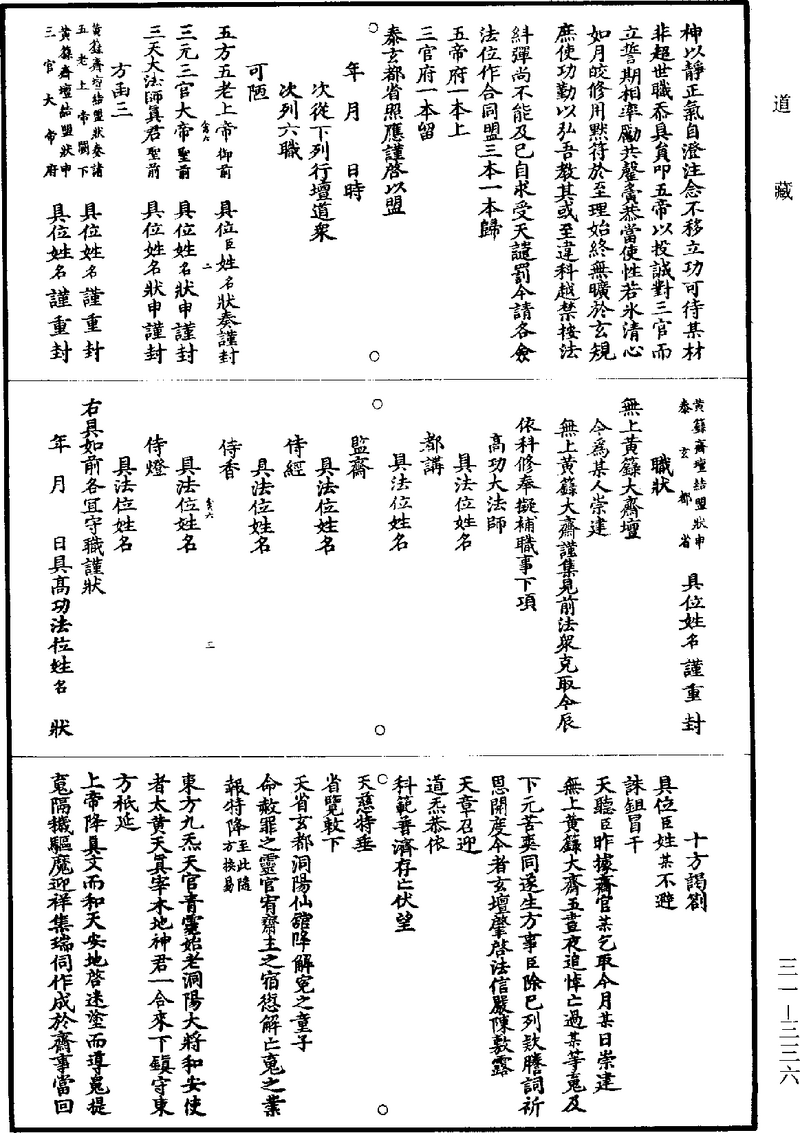 道藏
神以靜正氣自澄注念不移立功可待某材
非超世職忝具員叩五帝以投誠對三官而
立誓期相率勵共罄虔恭當使性若氷清心
如月皎修用默符於至理始終無曠於玄規
庶使功勤以弘吾教其或至違科越禁按法
糾彈尚不能及已自求受天譴罰今請各僉
法位作合同盟三本一本歸
五帝府一本上
三官府一本留
泰玄都省照應謹啓以盟
年 月 日時
次從下列行壇道衆
次列六職
可陋
五方五老上帝御前 具位臣姓名狀奏謹封
三元三官大帝聖前 具位姓名狀申謹封
三天大法師眞君聖前 具位姓名狀申謹封
方函三
黃籙齋壇結盟狀奏諸
五老上帝闕下 具位姓名謹重封
黃籙齋壇結盟狀申
三官大帝府 具位姓名謹重封
黃籙齋壇結盟狀申
泰玄都省 具位姓名謹重封
職狀
無上黃籙大齋壇
今爲某人崇建
無上黃籙大齋謹集見前法衆克取今辰
依科修奉擬補職事下項
高功大法師
具法位姓名
都講
具法位姓名
監齋
具法位姓名
侍經
具法位姓名
侍香
具法位姓名
侍燈
具法位姓名
右具如前各宜守職謹狀
年 月 日具高功法位姓名 狀
十方謁劄
具位臣姓某不避
誅鉏冒干
天聽臣昨據齋官某乞取今月某日崇建
無上黃籙大齋五晝夜追悼亡過某等䰟及
下元苦爽同遂生方事臣除已列欵謄詞祈
恩開度今者玄壇肇啓法信嚴陳敷露
天章召迎
道炁恭依
科範普濟存亡伏望
天慈特垂
省覽敕下
天省玄都洞陽仙舘降解寃之童子
命赦罪之靈官宥齋主之宿愆解亡䰟之業
報特降至此隨方換易
東方九炁天官青靈始老洞陽大將和安使
者太黃天眞宰木地神君一合來下鎭守東
方祇延
上帝降眞文而和天安地啓迷塗而導䰟提
䰟隔穢驅魔迎祥集瑞伺作成於齋事當回
三一—三三六